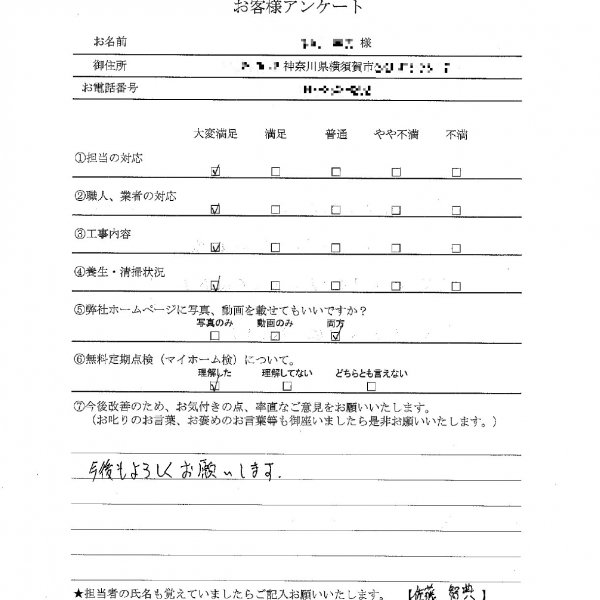 お客様アンケート
お名前 様
御住所 神奈川県横須賀市
お電話番号
大変満足 満足 普通 やや不満 不満
①担当の対応
②職人、業者の対応
③工事内容
④養生・清掃状況
⑤弊社ホームページに写真、動画を載せてもいいですか？
写真のみ 動画のみ 両方
⑥無料定期点検（マイホーム検）について。
理解した 理解してない どちらとも言えない
⑦今後改善のため、お気付きの点、率直なご意見をお願いいたします。
（お叱りのお言葉、お褒めのお言葉等も御座いましたら是非お願いいたします。）
今後もよろしくお願いします.
★担当者の氏名も覚えていましたらご記入お願いいたします。【佐藤 智典】